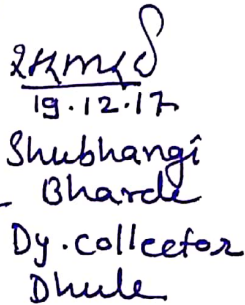 19.12.17
Shubhangi
Bharde
Dy. collector
Dhule